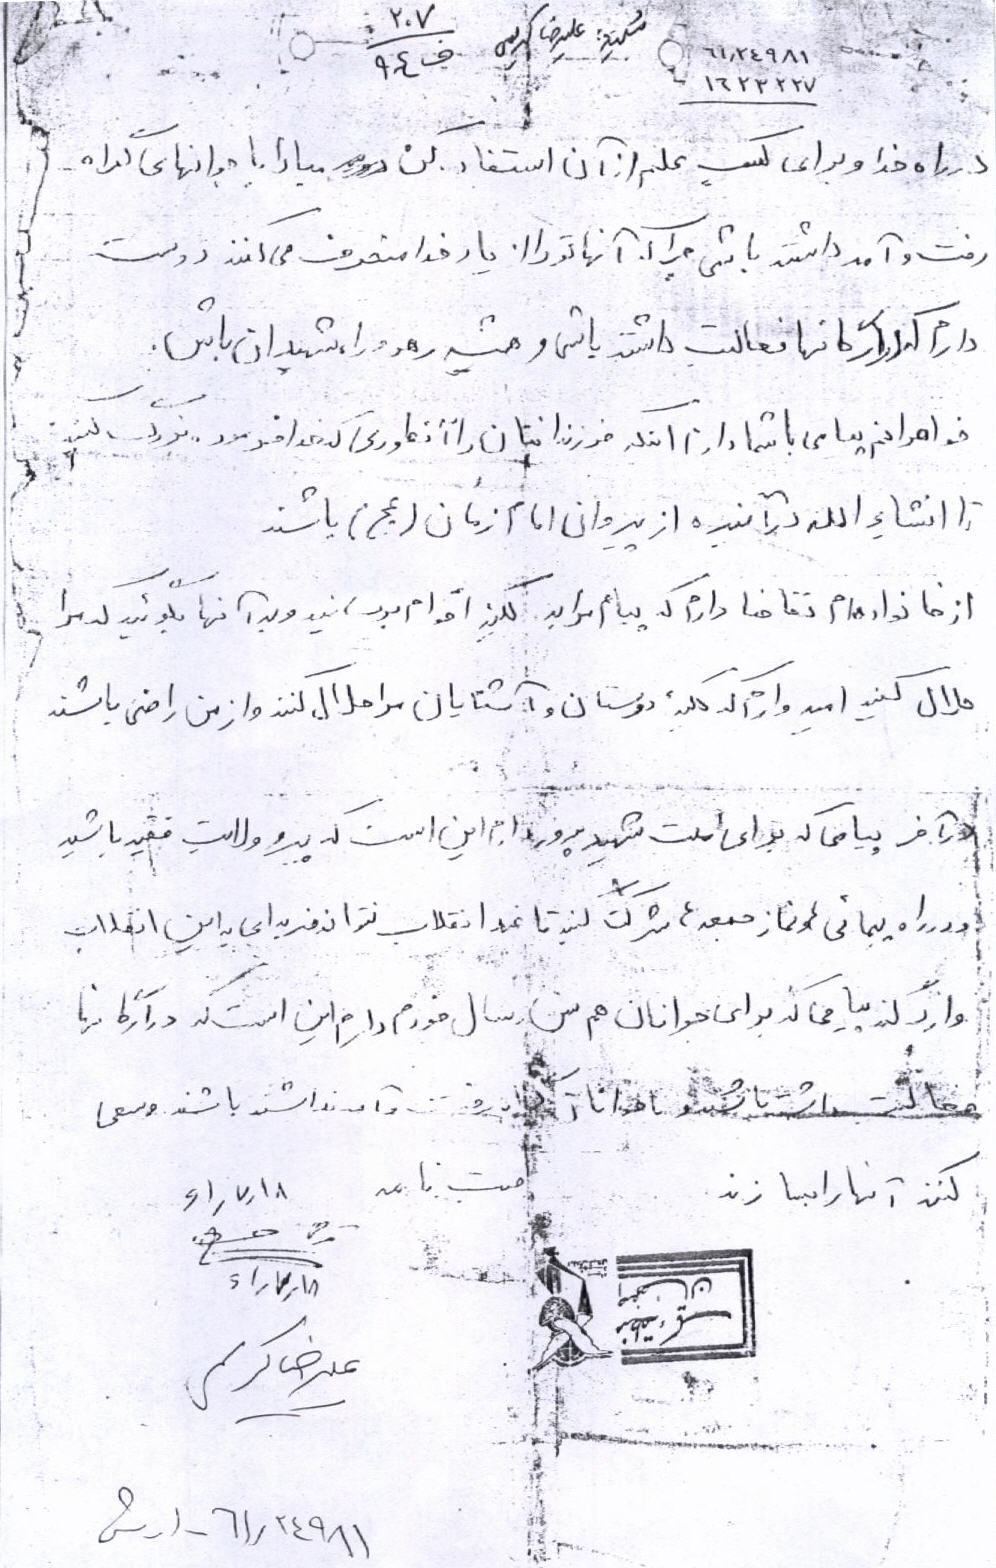 ۲۰۷
ف ۹۴
شهید: علیرضا کریمی
۶۱۲۴۹۸۱
۱۶۲۳۲۲۷
در راه خدا و برای کسب علم از آن استفاده کن مبادا با جوانهای گمراه
رفت و آمد داشته باشی چرا که آنها تو را از یاد خدا منحرف می‌کنند دوست
دارم که در ارگانها فعالیت داشته باشی و همیشه رهرو راه شهیدان باش.
خواهرانم پیامی با شما دارم اینکه فرزندانتان را آنطوری که خدا فرموده بزرگ کنید
تا انشاء الله در آینده از پیروان امام زمان (عج) باشند
از خانواده‌ام تقاضا دارم که پیام مرا به کلیه اقوام برسانید و به آنها بگوئید که مرا
حلال کنید امیدوارم که کلیه دوستان و آشنایان مرا حلال کنند و از من راضی باشند
در آخر پیامی که برای امت شهید پرور دارم این است که پیرو ولایت فقیه باشید
و در راه پیمائی و نماز جمعه شرکت کنید تا ضد انقلاب نتواند ضربه‌ای به این انقلاب
وارد کند پیامی که برای جوانان هم سن و سال خودم دارم این است که در ارگانها
فعالیت داشته باشند و با جوانان گمراه رفت و آمد نداشته باشند و سعی
کنند آنها را بسازند
وصیت نامه
۱۸/۷/۶۱
علیرضا کریمی
۶۱/۲۴۹۸۱ - ارتش